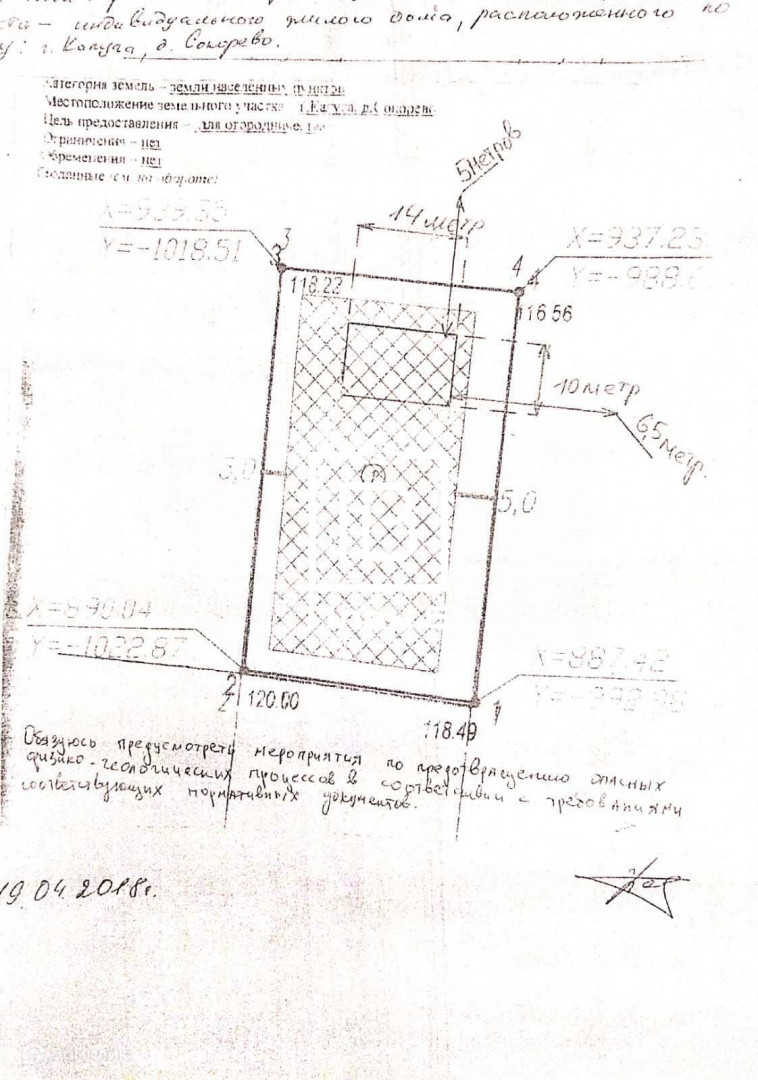 индивидуального жилого дома, расположенного по
г. Калуга, д. Сокорево.
Категория земель – земли населенных пунктов
Местоположение земельного участка г. Калуга, д. Сокорево
Цель предоставления – для огородничества
Ограничения – нет
Обременения – нет
на обороте:
5 метров
14 метр
Y=-1018.51
3
3
118.22
X=937.23
4
4
116.56
10 метр
6,5 метр.
3,0
5,0
X=890.04
Y=-1022.87
2
2
120.00
X=887.42
1
118.49
Обязуюсь предусмотреть мероприятия по предотвращению опасных
физико-геологических процессов в соответствии с требованиями
соответствующих нормативных документов.
19.04.2018г.